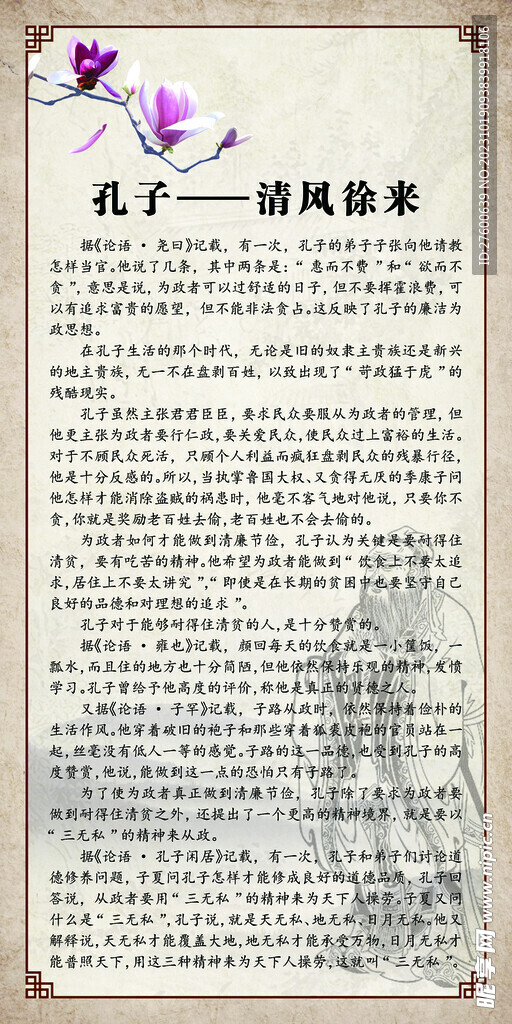 孔子——清风徐来
据《论语·尧曰》记载，有一次，孔子的弟子子张向他请教
怎样当官。他说了几条，其中两条是：“惠而不费”和“欲而不
贪”，意思是说，为政者可以过舒适的日子，但不要挥霍浪费，可
以有追求富贵的愿望，但不能非法贪占。这反映了孔子的廉洁为
政思想。
在孔子生活的那个时代，无论是旧的奴隶主贵族还是新兴
的地主贵族，无一不在盘剥百姓，以致出现了“苛政猛于虎”的
残酷现实。
孔子虽然主张君君臣臣，要求民众要服从为政者的管理，但
他更主张为政者要行仁政，要关爱民众，使民众过上富裕的生活。
对于不顾民众死活，只顾个人利益而疯狂盘剥民众的残暴行径，
他是十分反感的。所以，当执掌鲁国大权、又贪得无厌的季康子问
他怎样才能消除盗贼的祸患时，他毫不客气地对他说，只要你不
贪，你就是奖励老百姓去偷，老百姓也不会去偷的。
为政者如何才能做到清廉节俭，孔子认为关键是要耐得住
清贫，要有吃苦的精神。他希望为政者能做到“饮食上不要太追
求，居住上不要太讲究”，“即使是在长期的贫困中也要坚守自己
良好的品德和对理想的追求”。
孔子对于能够耐得住清贫的人，是十分赞赏的。
据《论语·雍也》记载，颜回每天的饮食就是一小筐饭，一
瓢水，而且住的地方也十分简陋，但他依然保持乐观的精神，发愤
学习。孔子曾给予他高度的评价，称他是真正的贤德之人。
又据《论语·子罕》记载，子路从政时，依然保持着俭朴的
生活作风。他穿着破旧的袍子和那些穿着狐裘皮袍的官员站在一
起，丝毫没有低人一等的感觉。子路的这一品德，也受到孔子的高
度赞赏，他说，能做到这一点的恐怕只有子路了。
为了使为政者真正做到清廉节俭，孔子除了要求为政者要
做到耐得住清贫之外，还提出了一个更高的精神境界，就是要以
“三无私”的精神来从政。
据《论语·孔子闲居》记载，有一次，孔子和弟子们讨论道
德修养问题，子夏问孔子怎样才能修成良好的道德品质，孔子回
答说，从政者要用“三无私”的精神来为天下人操劳。子夏又问
什么是“三无私”，孔子说，就是天无私、地无私、日月无私。他又
解释说，天无私才能覆盖大地，地无私才能承受万物，日月无私才
能普照天下，用这三种精神来为天下人操劳，这就叫“三无私”。
ID:27600639 NO:20231019093839918106
昵享网 www.nipic.cn